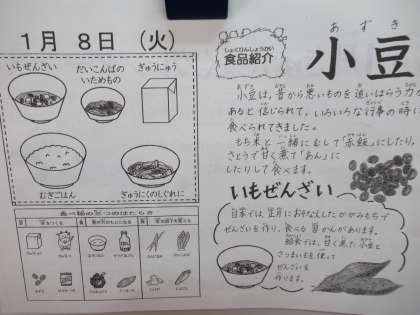 1月 8日 (火)
いもぜんざい
だいこんばの
いためもの
ぎゅうにゅう
むぎごはん
ぎゅうにくのしぐれに
食べ物の三つのはたらき
しょくひんしょうかい
食品紹介
あずき
小豆
小豆は、昔から悪いものを追いはらう力が
あると信じられて、いろいろな行事の時に
食べられてきました。
もち米と一緒にむして「赤飯」にしたり、
さとうで甘く煮て「あん」に
したりして食べます。
いもぜんざい
自家では、正月におそなえしたかがみもちで
ぜんざいを作り、食べる習かんがあります。
給食では、甘く煮た小豆と
さつまいもを使って
ぜんざいを
作ります。